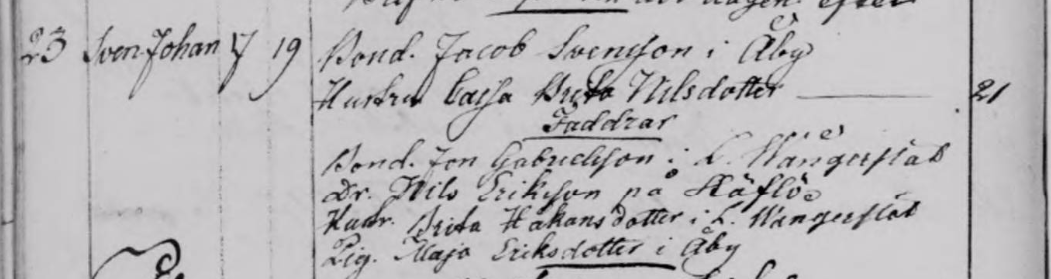 23 Sven Johan 17 19 Bond. Jacob Svensson i Åby
Hustru Cajsa Brita Nilsdotter 21
Faddrar
Bond. Jon Gabrielsson i L. Wångerstad
Dr. Nils Eriksson på
Hustr. Brita Håkansdotter i L. Wångerstad
Pig. Maja Eriksdotter i Åby